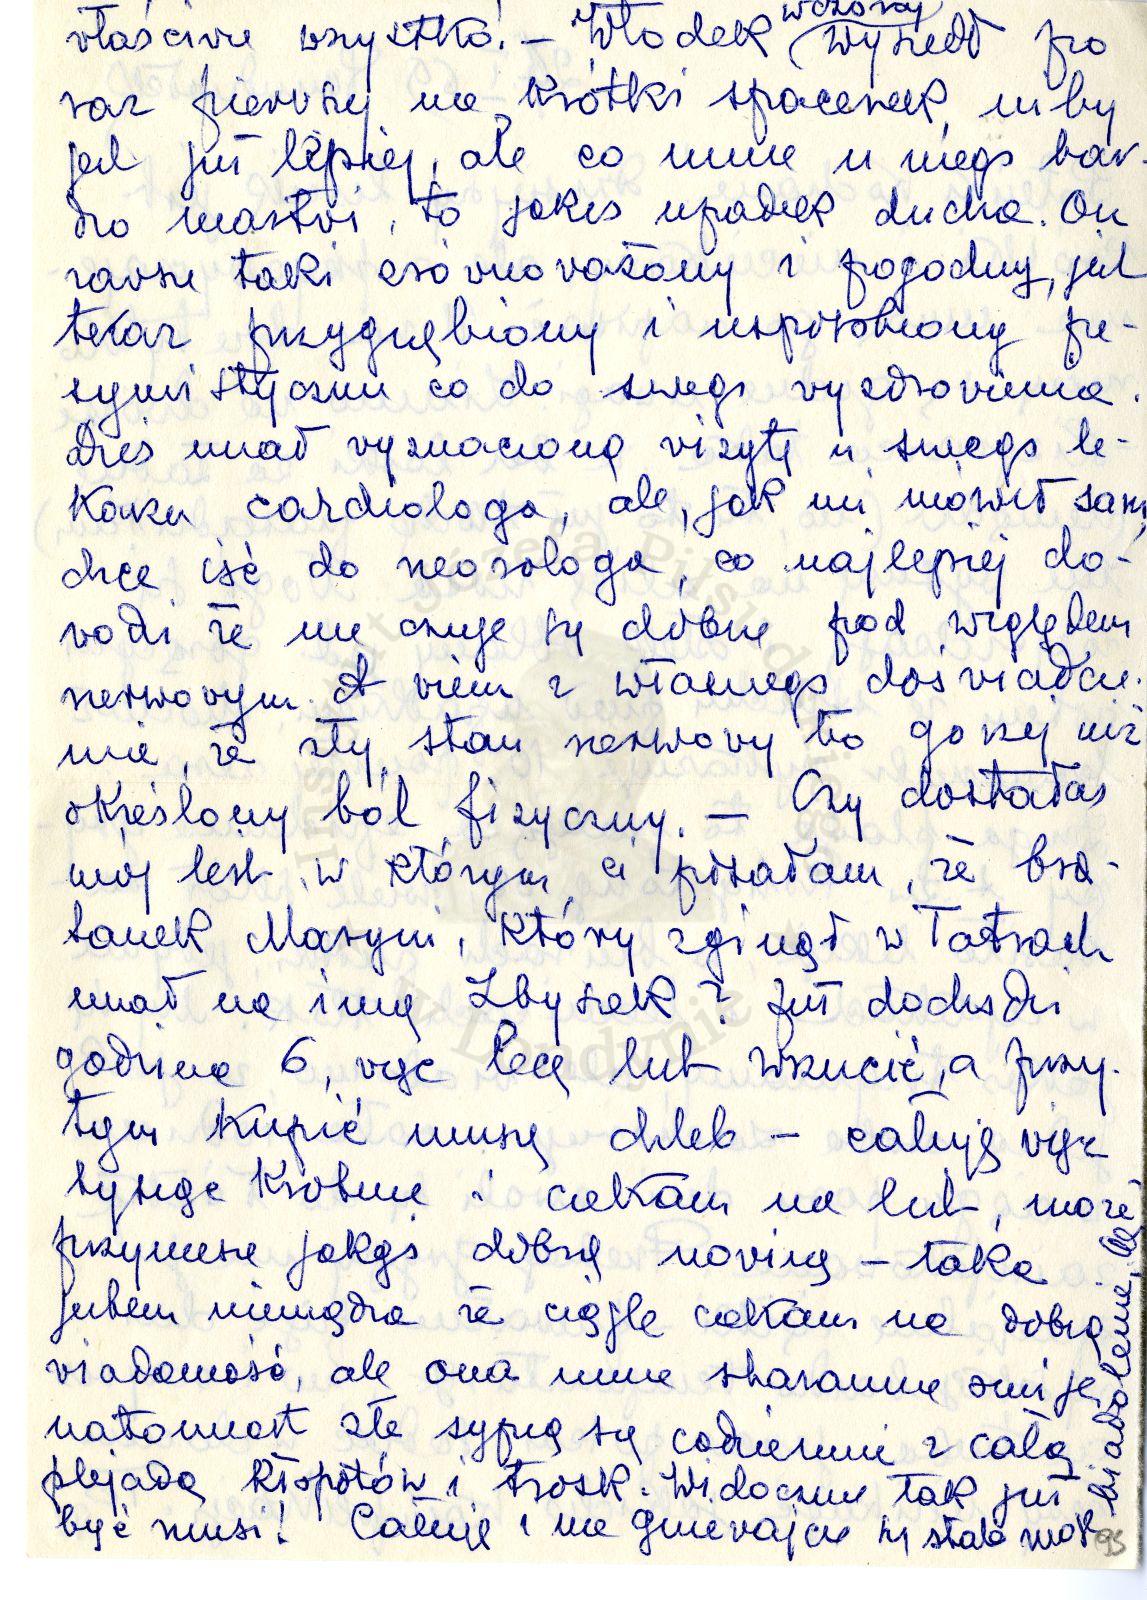 właściwie wszystko! – Włodek wczoraj wyszedł po
raz pierwszy na krótki spacerek, niby
jest już lepiej, ale co mnie u niego bar-
dzo martwi, to jakiś upadek ducha. On
zawsze taki zrównoważony i pogodny, jest
teraz przygnębiony i usposobiony pe-
symistycznie co do swego wyzdrowienia.
Dziś miał wyznaczoną wizytę u swego le-
karza cardiologa, ale, jak mi mówił sam,
chce iść do neorologa, co najlepiej do-
wodzi że nie czuje się dobrze pod względem
nerwowym. A wiem z własnego doświadcze-
nia, że zły stan nerwowy to gorzej niż
określony ból fizyczny. – Czy dostałaś
mój list w którym ci pisałam, że bra-
tanek Maryni, który zginął w Tatrach
miał na imię Zbyszek? Już dochodzi
godzina 6, więc lecę list wrzucić, a przy-
tym kupić muszę chleb – całuję więc
tysiąc krotnie i czekam na list, może
przyniesie jakąś dobrą nowinę – taka
jestem niemądra że ciągle czekam na dobrą
wiadomość, ale ona mnie starannie omija,
natomiast złe sypią się codziennie z całą
plejadą kłopotów i trosk. Widocznie tak już
być musi! Całuję i nie gniewajcie się stale
Institut Józefa Piłsudskiego
w Londynie
95